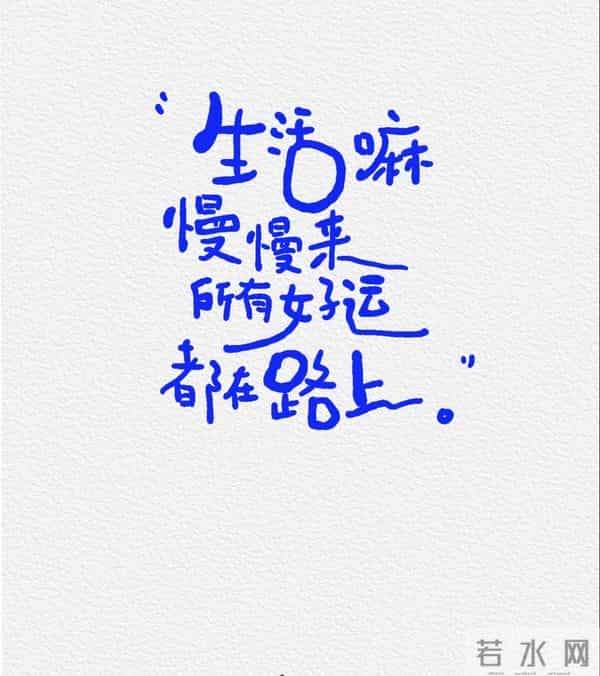 “生活嘛
慢慢来
所有好运
都在路上。”
若水网